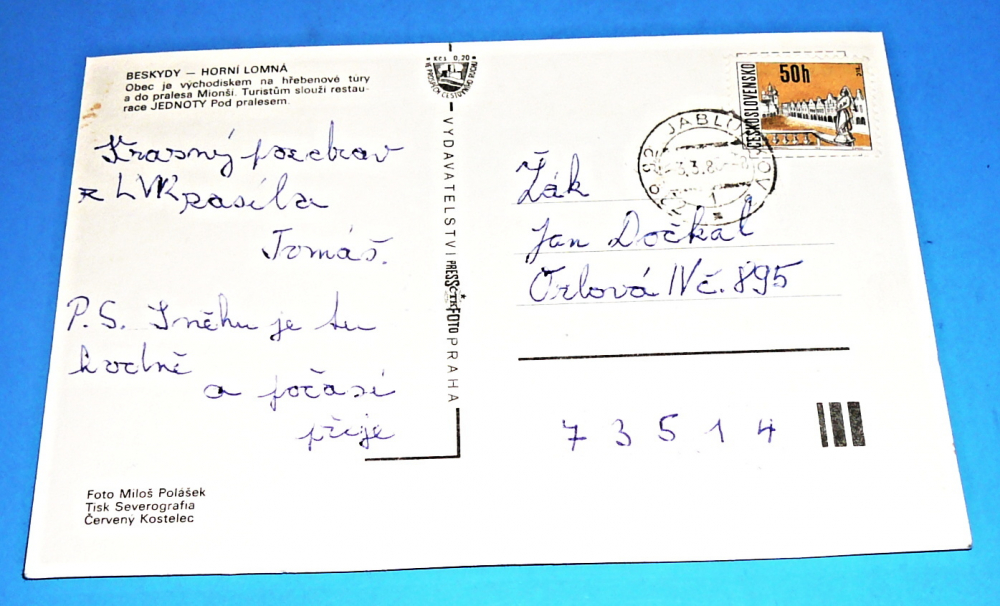 BESKYDY — HORNÍ LOMNÁ
Obec je východiskem na hřebenové túry
a do pralesa Mionší. Turistům slouží restau-
race JEDNOTY Pod pralesem.
Krasný pozdrav
z LVK zasíla
Tomáš.
P.S. Sněhu je tu
hodně
a počasí
přeje
Foto Miloš Polášek
Tisk Severografia
Červený Kostelec
Kčs 0,20
VYDAVATELSTVÍ PRESSFOTO PRAHA
ČTK
ČESKOSLOVENSKO
50h
3.3.8
1
Žák
Jan Dočkal
Orlová IV č. 895
7 3 5 1 4